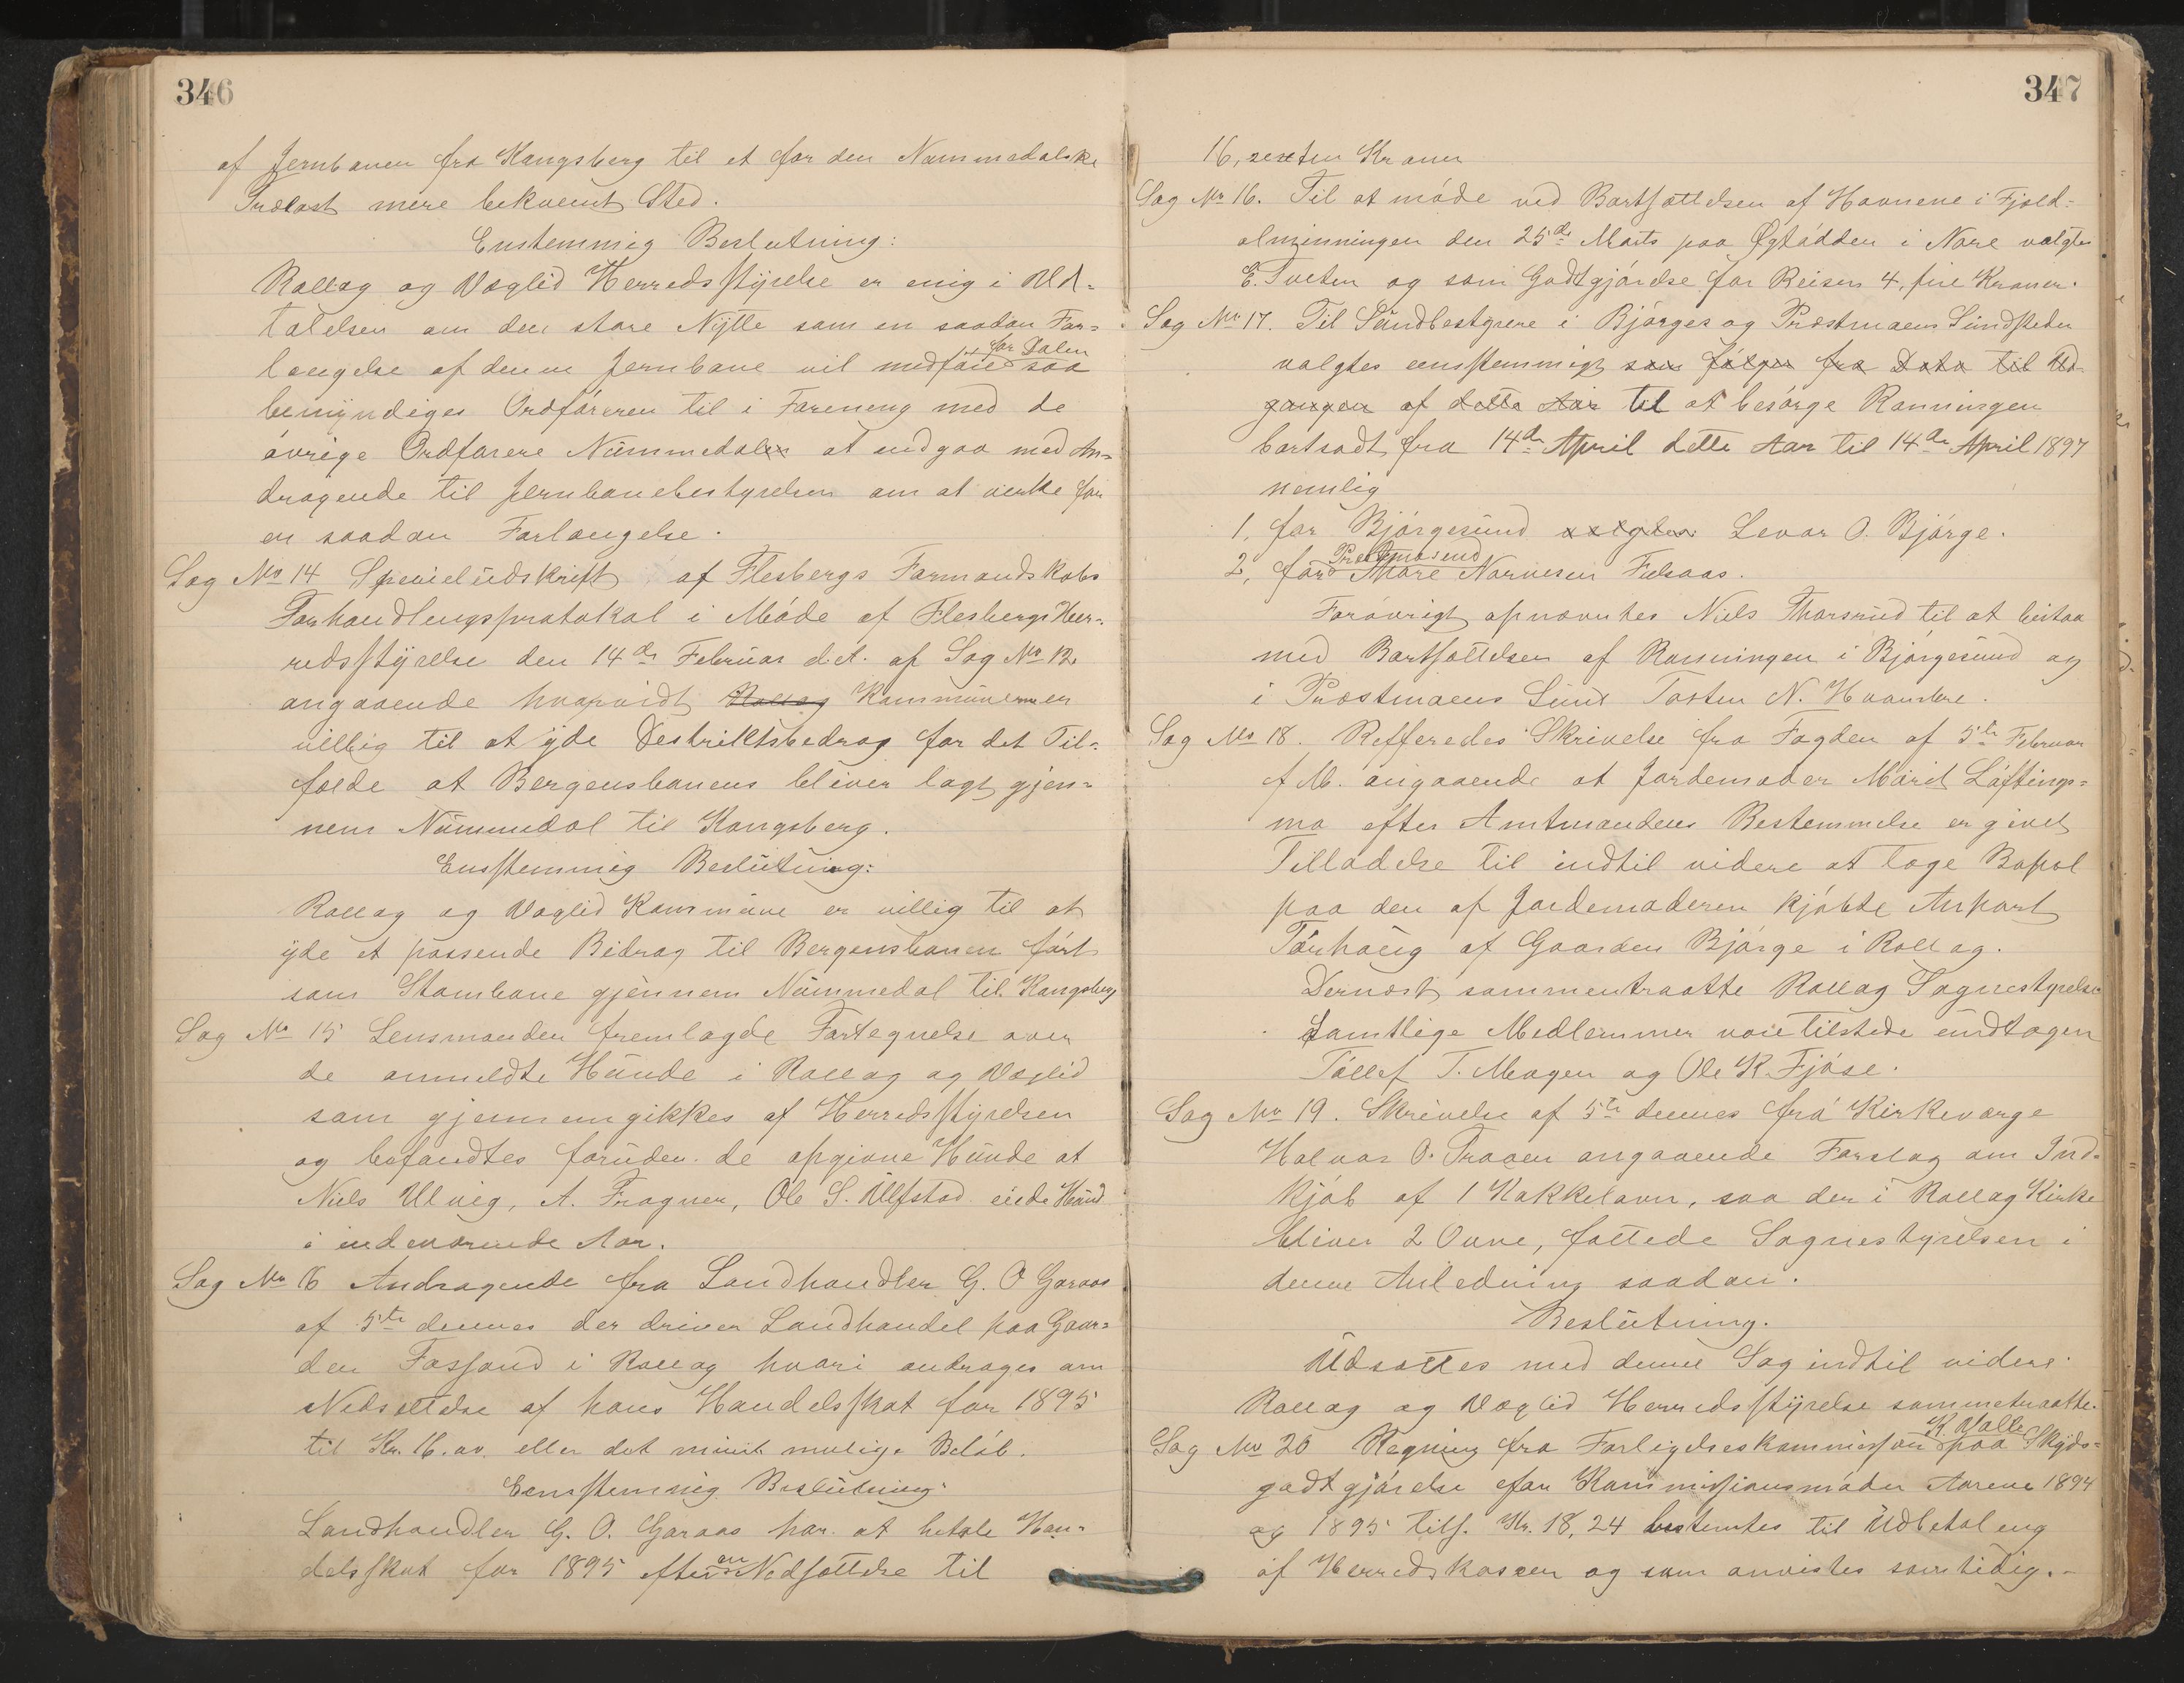 346
af Jernbanen fra Kongsberg til et for den Nummedalske
Trælast mere bekvemt Sted.
Enstemmig Beslutning:
Rollag og Væglid Herredsstyrelse er enig i Ud-
talelsen om den store Nytte som en saadan For-
længelse af denne Jernbane vil medføre for Dalen saa
bemyndiges Ordføreren til i Forening med de
øvrige Ordførere Nummedalen at indgaa med An-
dragende til Jernbanebestyrelsen om at virke for
en saadan Forlængelse.
Sag No 14 Specieludskrift af Flesbergs Formandskabs
Forhandlingsprotokol i Møde af Flesbergs Her-
redsstyrelse den 14de Februar d.A. af Sag No 12
angaaende hvorvidt Rollag Kommunen er
villig til at yde Destriktsbedrag for det Til-
fælde at Bergensbanens bliver lagt gjen-
nem Nummedal til Kongsberg.
Ensstemmig Beslutning:
Rollag og Væglid Kommune er villig til at
yde et passende Bidrag til Bergensbanen ført
som Stambane gjennem Nummedal til Kongsberg
Sag No 15 Lensmanden fremlagde Fortegnelse over
de anmeldte Hunde i Rollag og Væglid
som gjennemgikkes af Herredsstyrelsen
og befandtes foruden de opgivne Hunde at
Niels Ulvig, A. Fragner, Ole S. Ulfstad eiede Hund
i indeværende Aar.
Sag No 16 Andragende fra Landhandler G. O Garaas
af 5te dennes der driver Landhandel paa Gaar-
den Fossand i Rollag hvori andrages om
Nedsættelse af hans Handelsskat for 1895
til Kr. 16.00 eller det mindst mulige Beløb.
Eensstemmig Beslutning:
Landhandler G. O. Garaas har at betale Han-
delsskat for 1895 efter en Nedsættelse til
347
16, sexten Kroner
Sag No 16. Til at møde ved Bortsættelsen af Havnene i Fjeld-
alminningen den 25de Marts paa Øgtødden i Nore valgtes
E. Tveten og som Godtgjørelse for Reisen 4, fire Kroner.
Sag No 17. Til Sundbestyrere i Bjørges og Præstmoens Sundsteder
valgtes eensstemmigt som følger fra Dato til Ud-
gangen af dette Aar til at besørge Roningen
bortsadt fra 14de April dette Aar til 14de April 1897
nemlig
1, for Bjørgesund valgtes Levor O. Bjørge.
2, for Præstmosund Thore Narvesen Fulsaas.
Forøvrigt opnævntes Niels Thorsrud til at bistaa
med Bortsættelsen af Roningen i Bjørgesund og
i Præstmoens Sund Tosten N. Hvambre.
Sag No 18. Refferedes Skrivelse fra Fogden af 5te Februar
f M. angaaende at Jordemoder Marit Løftings-
mo efter Amtmandens Bestemmelse er givet
Tilladelse til indtil videre at tage Bopæl
paa den af Jordemoderen kjøbte Anpart
Tønhaug af Gaarden Bjørge i Rollag.
Dernæst sammentraatte Rollag Sognestyrelse
Samtlige Medlemmer var tilstede undtagen
Tøllef T. Mogen og Ole K. Fjøse.
Sag No 19. Skrivelse af 5te dennes fra Kirkeværge
Halvor O. Traaen angaaende Forslag om Ind-
kjøb af 1 Kakkelovn, saa der i Rollag Kirke
bliver 2 Ovne, fattede Sognestyrelsen i
denne Anledning saadan.
Beslutning.
Udsættes med denne Sag indtil videre.
Rollag og Væglid Herredsstyrelse sammentraatte.
Sag No 20 Regning fra Forligelseskommission K. Valle paa Skyds-
godtgjørelse for Kommissionsmøder Aarene 1894
og 1895 tils. Kr. 18,24 bestemtes til Udbetaleng
af Herredskassen og som anvistes samtidig.-